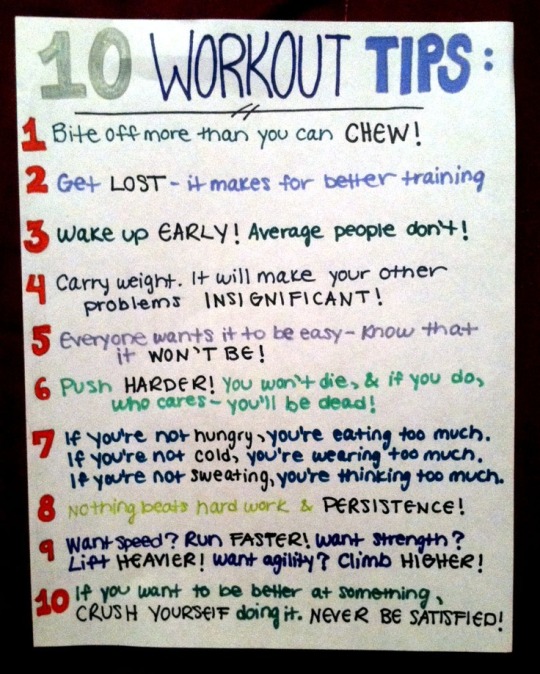 10 WORKOUT TIPS:
1 Bite off more than you can CHEW!
2 Get LOST - it makes for better training
3 Wake up EARLY! Average people don't!
4 Carry weight. It will make your other
problems INSIGNIFICANT!
5 Everyone wants it to be easy - Know that
it WON'T BE!
6 Push HARDER! You won't die, & if you do,
who cares - you'll be dead!
7 If you're not hungry, you're eating too much.
If you're not cold, you're wearing too much.
If you're not sweating, you're thinking too much.
8 Nothing beats hard work & PERSISTENCE!
9 Want speed? Run FASTER! Want strength?
Lift HEAVIER! Want agility? Climb HIGHER!
10 If you want to be better at something,
CRUSH YOURSELF doing it. NEVER BE SATISFIED!